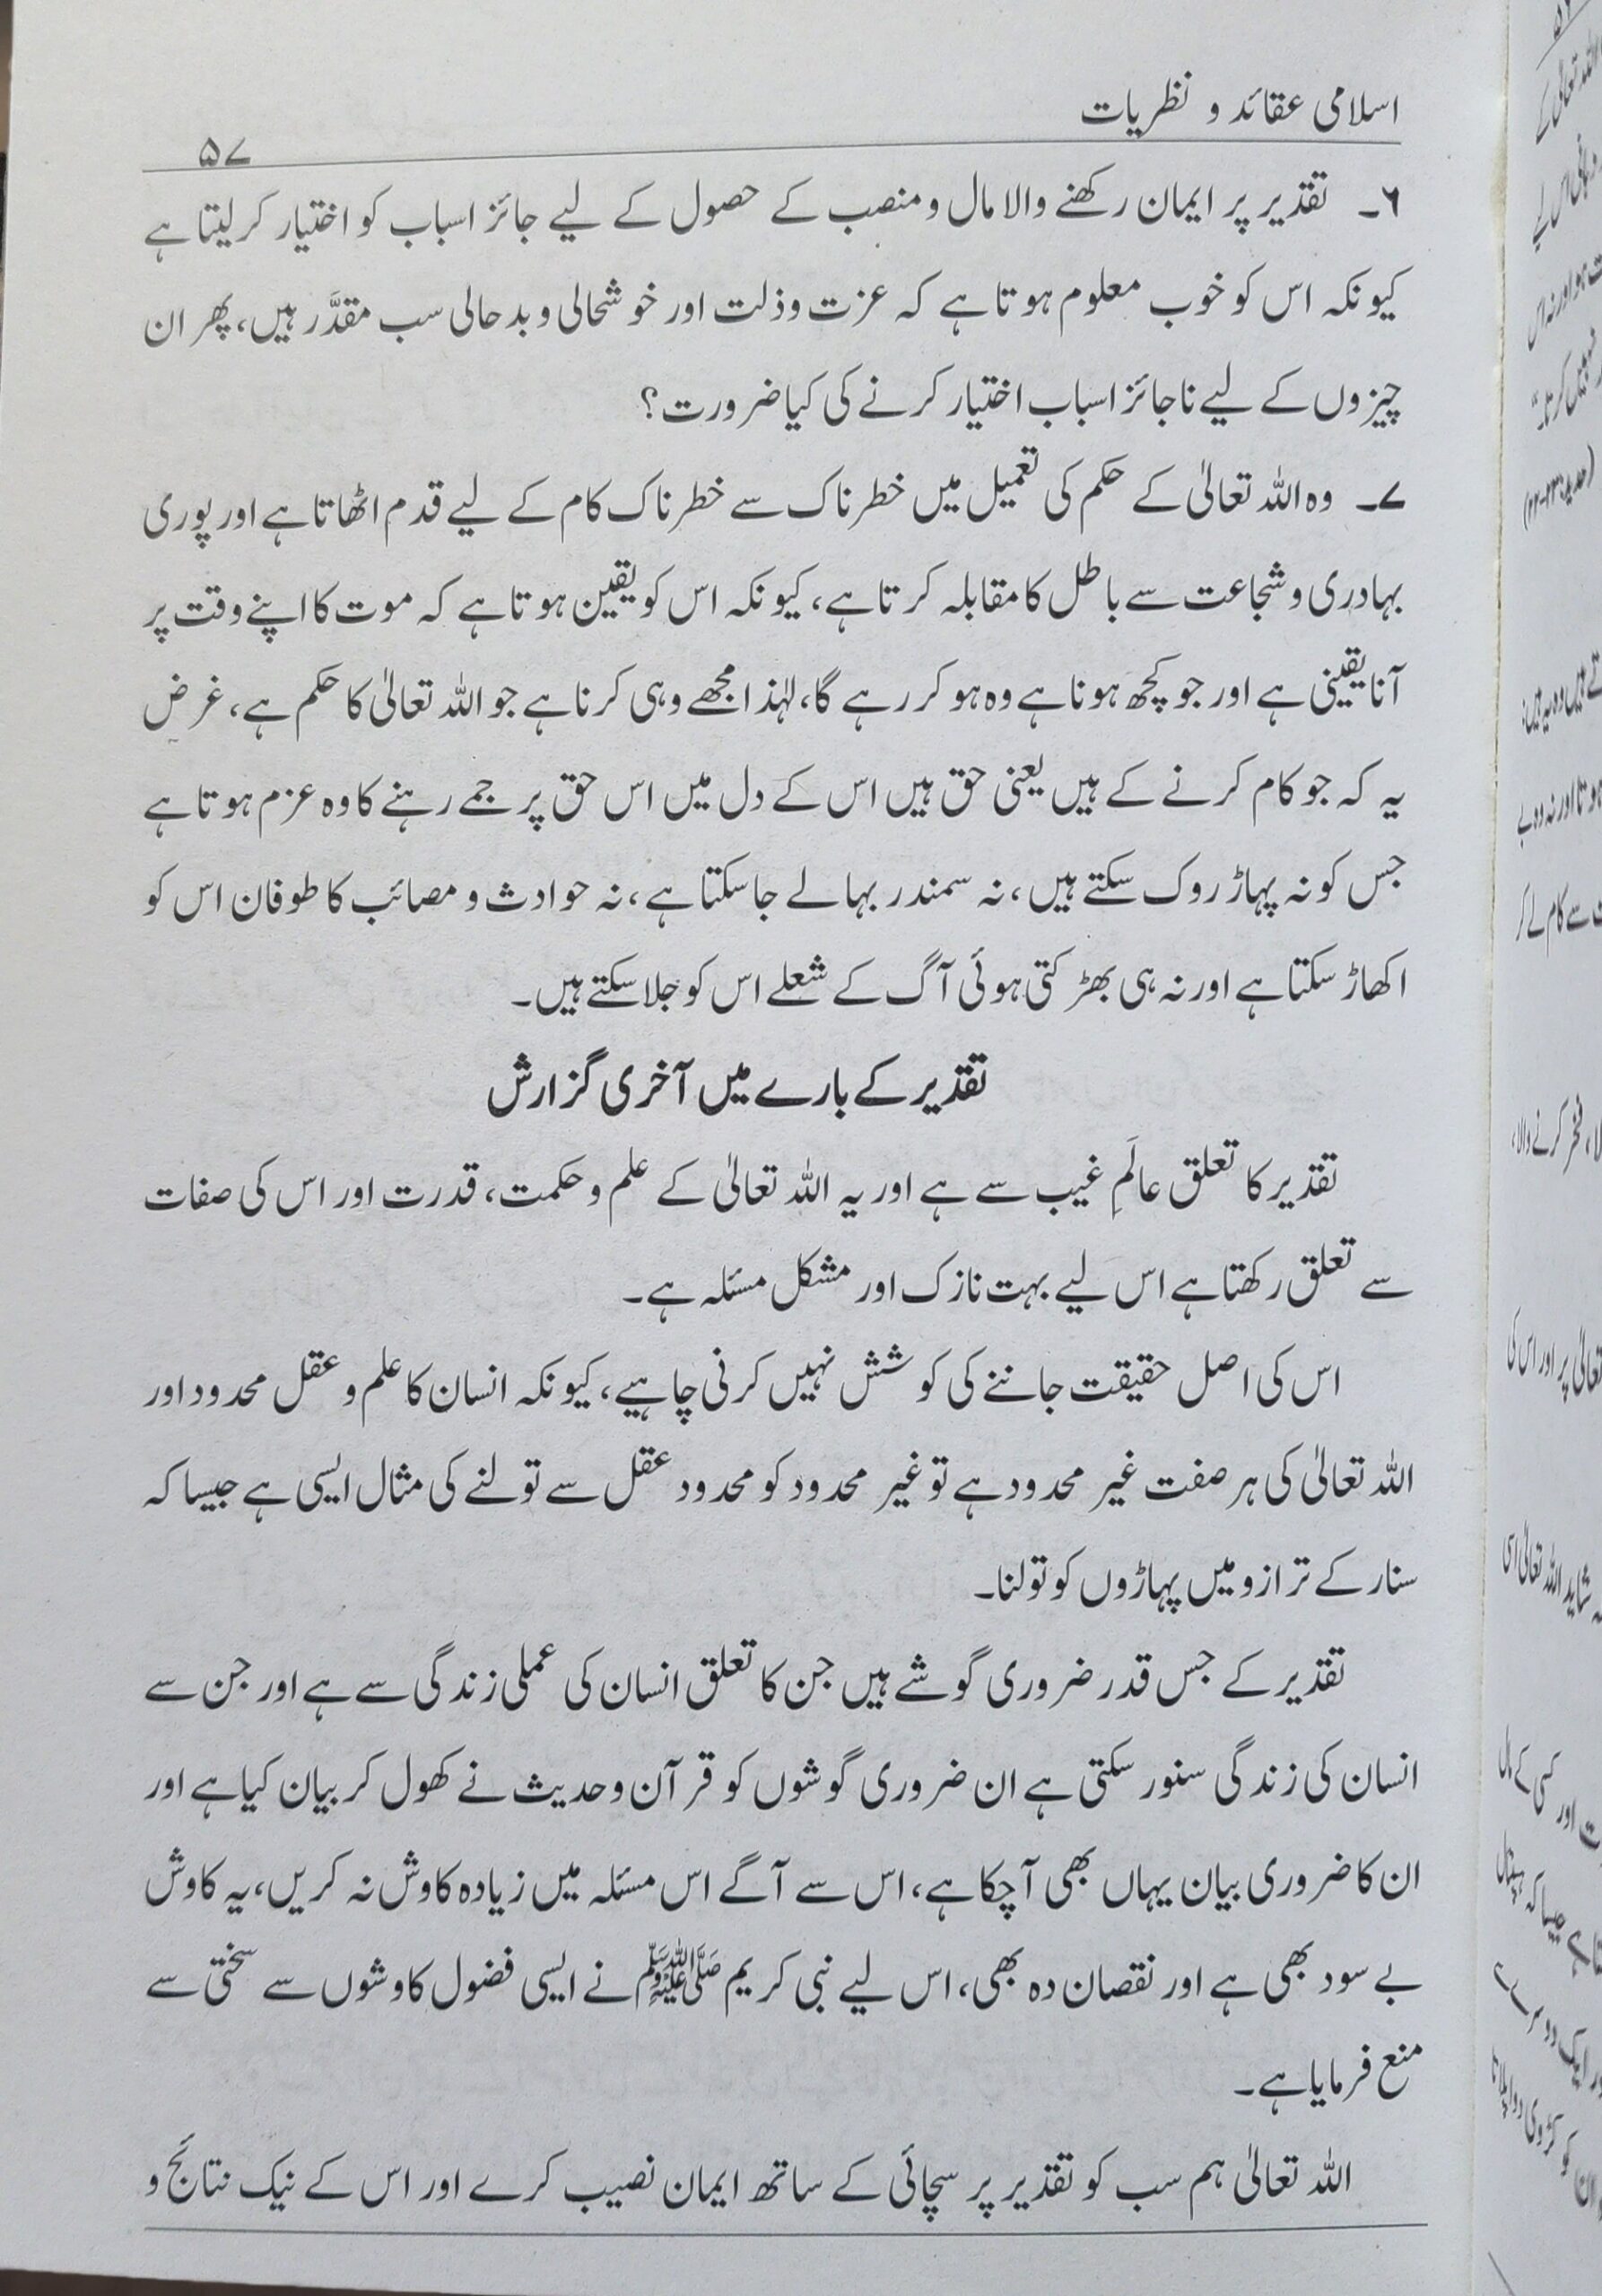 اسلامی عقائد و نظریات
۵۷
۶۔ تقدیر پر ایمان رکھنے والا مال و منصب کے حصول کے لیے جائز اسباب کو اختیار کر لیتا ہے
کیونکہ اس کو خوب معلوم ہوتا ہے کہ عزت و ذلت اور خوشحالی و بدحالی سب مقدَّر ہیں، پھر ان
چیزوں کے لیے ناجائز اسباب اختیار کرنے کی کیا ضرورت؟
۷۔ وہ اللہ تعالیٰ کے حکم کی تعمیل میں خطرناک سے خطرناک کام کے لیے قدم اٹھاتا ہے اور پوری
بہادری و شجاعت سے باطل کا مقابلہ کرتا ہے، کیونکہ اس کو یقین ہوتا ہے کہ موت کا اپنے وقت پر
آنا یقینی ہے اور جو کچھ ہونا ہے وہ ہو کر رہے گا، لہٰذا مجھے وہی کرنا ہے جو اللہ تعالیٰ کا حکم ہے، غرض
یہ کہ جو کام کرنے کے ہیں یعنی حق ہیں اس کے دل میں اس حق پر جمے رہنے کا وہ عزم ہوتا ہے
جس کو نہ پہاڑ روک سکتے ہیں، نہ سمندر بہالے جاسکتا ہے، نہ حوادث و مصائب کا طوفان اس کو
اکھاڑ سکتا ہے اور نہ ہی بھڑکتی ہوئی آگ کے شعلے اس کو جلا سکتے ہیں۔
تقدیر کے بارے میں آخری گزارش
تقدیر کا تعلق عالَمِ غیب سے ہے اور یہ اللہ تعالیٰ کے علم و حکمت، قدرت اور اس کی صفات
سے تعلق رکھتا ہے اس لیے بہت نازک اور مشکل مسئلہ ہے۔
اس کی اصل حقیقت جاننے کی کوشش نہیں کرنی چاہیے، کیونکہ انسان کا علم و عقل محدود اور
اللہ تعالیٰ کی ہر صفت غیر محدود ہے تو غیر محدود کو محدود عقل سے تولنے کی مثال ایسی ہے جیسا کہ
سنار کے ترازو میں پہاڑوں کو تولنا۔
تقدیر کے جس قدر ضروری گوشے ہیں جن کا تعلق انسان کی عملی زندگی سے ہے اور جن سے
انسان کی زندگی سنور سکتی ہے ان ضروری گوشوں کو قرآن و حدیث نے کھول کر بیان کیا ہے اور
ان کا ضروری بیان یہاں بھی آچکا ہے، اس سے آگے اس مسئلہ میں زیادہ کاوش نہ کریں، یہ کاوش
بے سود بھی ہے اور نقصان دہ بھی، اس لیے نبی کریم ﷺ نے ایسی فضول کاوشوں سے سختی سے
منع فرمایا ہے۔
اللہ تعالیٰ ہم سب کو تقدیر پر سچائی کے ساتھ ایمان نصیب کرے اور اس کے نیک نتائج و